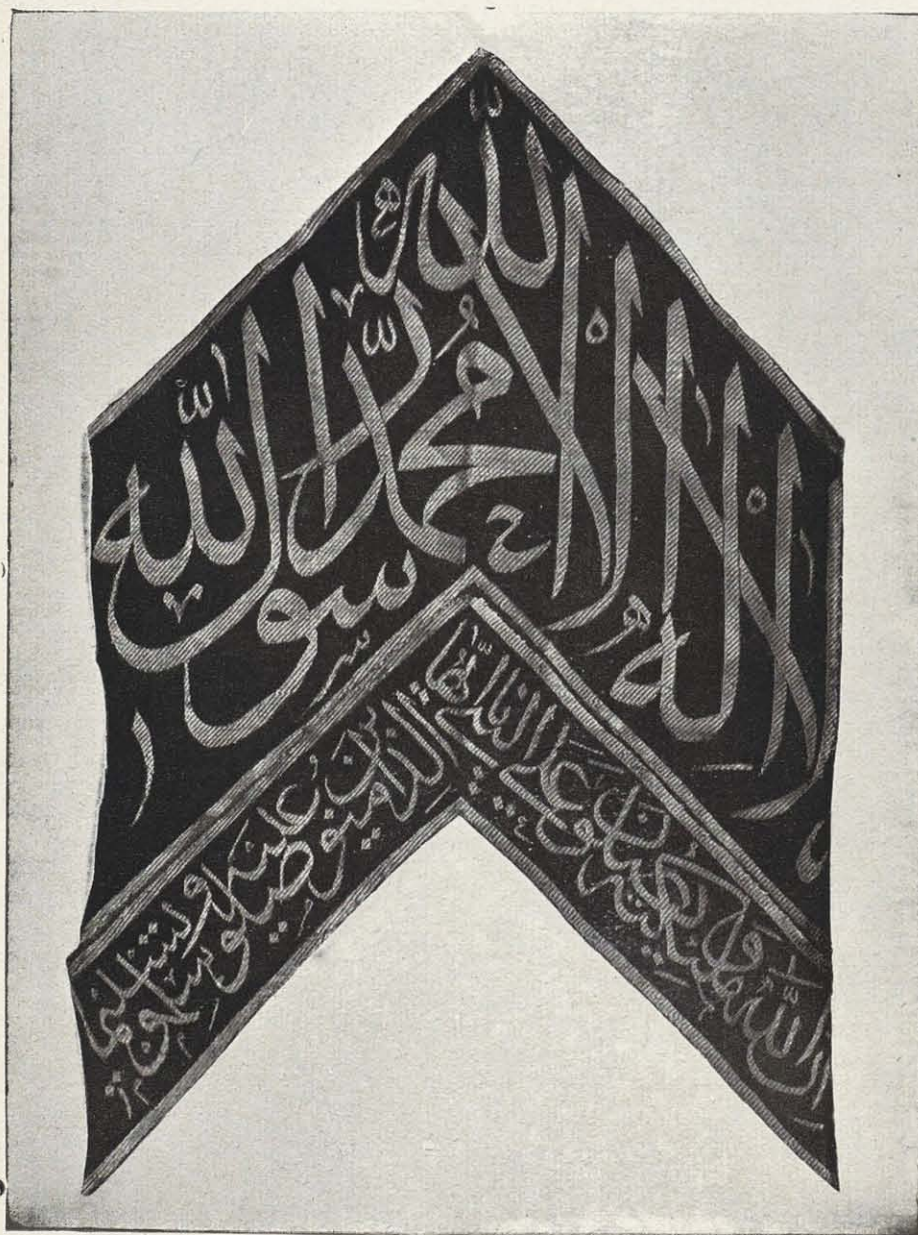 لا إله إلا الله محمد رسول الله
إن الله وملئكته يصلون على النبي يا أيها
الذين آمنوا صلوا عليه وسلموا تسليما